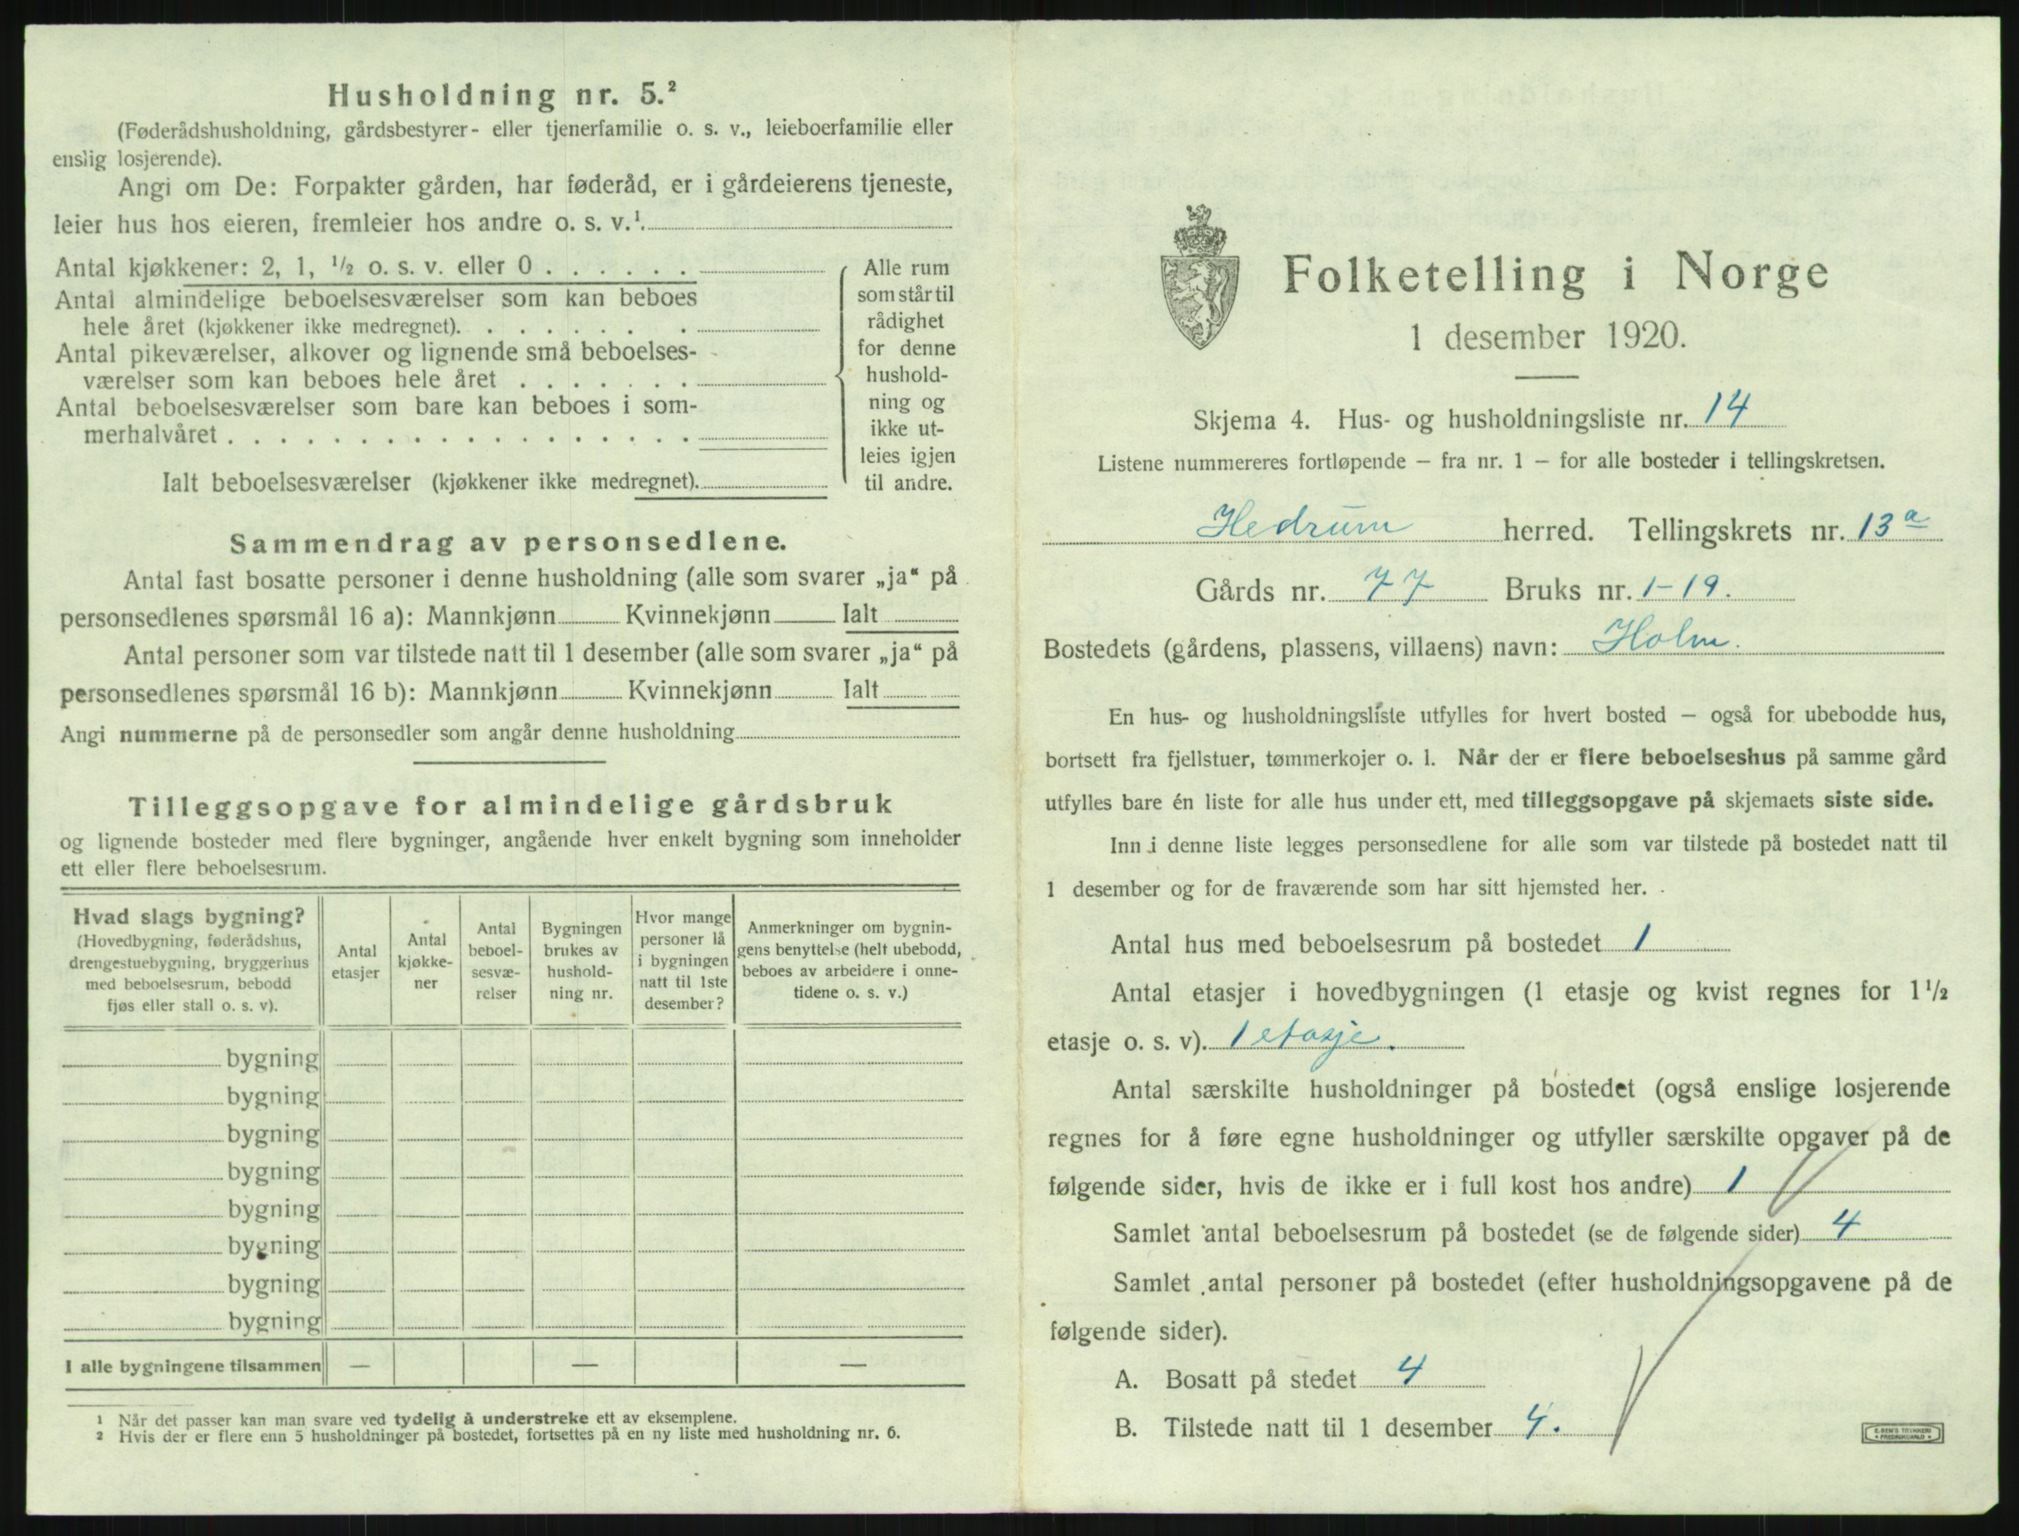 Husholdning nr. 5.²
(Føderådshusholdning, gårdsbestyrer- eller tjenerfamilie o. s. v., leieboerfamilie eller
enslig losjerende).
Angi om De: Forpakter gården, har føderåd, er i gårdeierens tjeneste,
leier hus hos eieren, fremleier hos andre o. s. v.¹.
Antal kjøkkener: 2, 1, ½ o. s. v. eller 0 . . . . . .
Antal almindelige beboelsesværelser som kan beboes
hele året (kjøkkener ikke medregnet). . . . . . . .
Antal pikeværelser, alkover og lignende små beboelses-
værelser som kan beboes hele året . . . . . . .
Antal beboelsesværelser som bare kan beboes i som-
merhalvåret . . . . . . . . . . . . . . . . . .
Ialt beboelsesværelser (kjøkkener ikke medregnet).
Alle rum
som står til
rådighet
for denne
hushold-
ning og
ikke ut-
leies igjen
til andre.
Sammendrag av personsedlene.
Antal fast bosatte personer i denne husholdning (alle som svarer „ja“ på
personsedlenes spørsmål 16 a): Mannkjønn Kvinnekjønn Ialt
Antal personer som var tilstede natt til 1 desember (alle som svarer „ja“ på
personsedlenes spørsmål 16 b): Mannkjønn Kvinnekjønn Ialt
Angi nummerne på de personsedler som angår denne husholdning
Tilleggsopgave for almindelige gårdsbruk
og lignende bosteder med flere bygninger, angående hver enkelt bygning som inneholder
ett eller flere beboelsesrum.
Hvad slags bygning?
(Hovedbygning, føderådshus,
drengestuebygning, bryggerhus
med beboelsesrum, bebodd
fjøs eller stall o. s. v).
Antal
etasjer
Antal
kjøkke-
ner
Antal
beboel-
sesvæ-
relser
Bygningen
brukes av
hushold-
ning nr.
Hvor mange
personer lå
i bygningen
natt til 1ste
desember?
Anmerkninger om bygnin-
gens benyttelse (helt ubebodd,
beboes av arbeidere i onne-
tidene o. s. v.)
bygning
bygning
bygning
bygning
bygning
bygning
bygning
bygning
I alle bygningene tilsammen — — —
¹ Når det passer kan man svare ved tydelig å understreke ett av eksemplene.
² Hvis der er flere enn 5 husholdninger på bostedet, fortsettes på en ny liste med husholdning nr. 6.
Folketelling i Norge
1 desember 1920.
Skjema 4. Hus- og husholdningsliste nr. 14
Listene nummereres fortløpende – fra nr. 1 – for alle bosteder i tellingskretsen.
Hedrum herred. Tellingskrets nr. 13 a
Gårds nr. 77 Bruks nr. 1-19.
Bostedets (gårdens, plassens, villaens) navn: Holm.
En hus- og husholdningsliste utfylles for hvert bosted – også for ubebodde hus,
bortsett fra fjellstuer, tømmerkojer o. l. Når der er flere beboelseshus på samme gård
utfylles bare én liste for alle hus under ett, med tilleggsopgave på skjemaets siste side.
Inn i denne liste legges personsedlene for alle som var tilstede på bostedet natt til
1 desember og for de fraværende som har sitt hjemsted her.
Antal hus med beboelsesrum på bostedet 1
Antal etasjer i hovedbygningen (1 etasje og kvist regnes for 1½
etasje o. s. v). 1 etasje.
Antal særskilte husholdninger på bostedet (også enslige losjerende
regnes for å føre egne husholdninger og utfyller særskilte opgaver på de
følgende sider, hvis de ikke er i full kost hos andre) 1
Samlet antal beboelsesrum på bostedet (se de følgende sider) 4
Samlet antal personer på bostedet (efter husholdningsopgavene på de
følgende sider).
A. Bosatt på stedet 4
B. Tilstede natt til 1 desember 4.